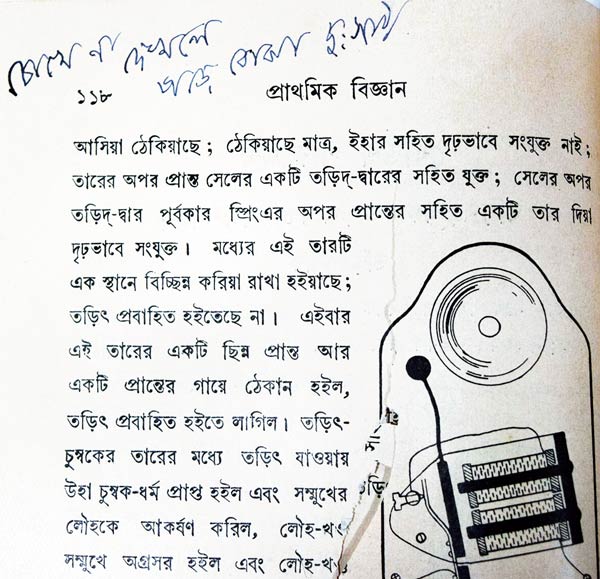 চোখে না দেখলে
বোঝা দুঃসাধ্য
১১৮ প্রাথমিক বিজ্ঞান
আসিয়া ঠেকিয়াছে ; ঠেকিয়াছে মাত্র, ইহার সহিত দৃঢ়ভাবে সংযুক্ত নাই ;
তারের অপর প্রান্ত সেলের একটি তড়িদ্-দ্বারের সহিত যুক্ত ; সেলের অপর
তড়িদ্-দ্বার পূর্বকার স্প্রিংএর অপর প্রান্তের সহিত একটি তার দিয়া
দৃঢ়ভাবে সংযুক্ত। মধ্যের এই তারটি
এক স্থানে বিচ্ছিন্ন করিয়া রাখা হইয়াছে ;
তড়িৎ প্রবাহিত হইতেছে না। এইবার
এই তারের একটি ছিন্ন প্রান্ত আর
একটি প্রান্তের গায়ে ঠেকান হইল,
তড়িৎ প্রবাহিত হইতে লাগিল। তড়িৎ-
চুম্বকের তারের মধ্যে তড়িৎ যাওয়ায়
উহা চুম্বক-ধর্ম প্রাপ্ত হইল এবং সম্মুখের
লৌহকে আকর্ষণ করিল, লৌহ-খণ্ড
সম্মুখে অগ্রসর হইল এবং লৌহ-খণ্ড
তড়ি